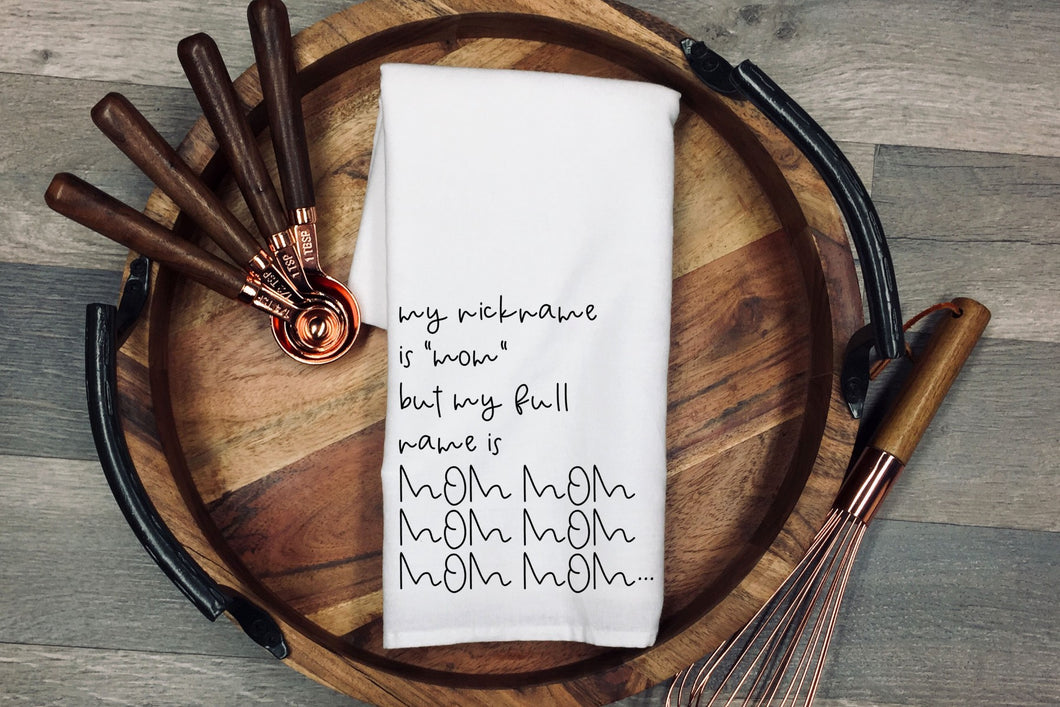 my nickname
is "mom"
but my full
name is
MOM MOM
MOM MOM
MOM MOM...
1/4 TSP
1/2 TSP
1 TSP
1 TBSP